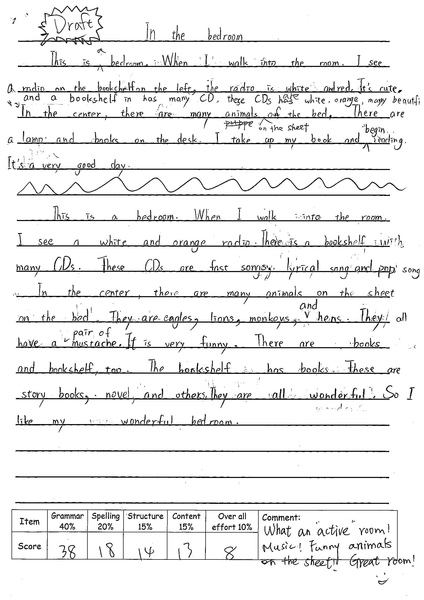 Draft
In the bedroom
This is a bedroom. When I walk into the room. I see
a radio on the bookshelf on the left, the radio is white and red. It's cute.
and a bookshelf in has many CD. these CDs has white. orange, many beautifi
In the center, there are many animals on the bed. There are
on the sheet
begin
a lamp and books on the desk. I take up my book and reading.
It's a very good day.
This is a bedroom. When I walk into the room.
I see a white and orange radio. There is a bookshelf with
many CDs. These CDs are fast songs, lyrical song and pop song
In the center, there are many animals on the sheet
on the bed. They are eagles, lions, monkeys and hens. They all
have a pair of mustache. It is very funny. There are books
and bookshelf, too. The bookshelf has books. These are
story books, novel, and others. They are all wonderful. So I
like my wonderful bedroom.
Item Grammar 40% Spelling 20% Structure 15% Content 15% Over all effort 10% Comment:
Score 38 18 14 13 8
What an "active" room!
Music! Funny animals
on the sheet!! Great room!